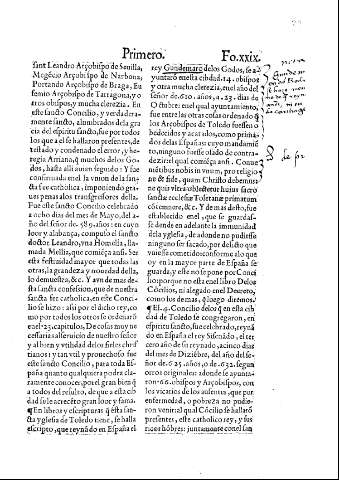 Primero. Fo.xxix.
sant Leandro Arçobispo de Seuilla,
Megecio Arçobispo de Narbona,
Portando Arçobispo de Braga, Eu
femio Arçobispo de Tarragona, y o
tros obispos, y mucha clerezia. En
este sancto Concilio, y verdadera-
mente sancto, alumbrados dela gra
cia del espiritu sancto, fue por todos
los que a el se hallaron presentes, de
testado y condenado el error, y he
regia Arriana, q̃ muchos delos Go
dos, hasta alli auian seguido: Y fue
confirmado enel la vnion de la san-
ta fe catholica, imponiendo gra-
ues penas alos transgressores della.
Fue este sancto Concilio celebrado
a ocho dias del mes de Mayo, del a-
ño del señor de .589. años: en cuyo
loor y alabança, compuso el sancto
doctor Leandro, vna Homelia, lla-
mada Mellia, que comiẽça ansi. Ser
esta festiuidad mayor que todas las
otras, la grandeza y nouedad della,
lo demuestra, &c. Y avn de mas de-
sta sancta confession, que de nuestra
sancta fee catholica, en este Conci-
lio se hizo: alli por el dicho rey, co
mo por todos los otros se ordenarõ
enel .23. capitulos. De cosas muy ne
cessarias al seruicio de nuestro señor
y al bien y vtilidad delos fieles chris
tianos: y tan vtil y prouechoso fue
este sancto Concilio, para toda Es-
paña quanto qualquiera podra cla-
ramente conocer, por el gran bien q̃
a todos del resulto, de que a esta cib
dad sele acrecento gran loor y fama.
¶ En libros y escripturas q̃ ẽsta san-
cta yglesia de Toledo tiene, se halla
escripto, que reynãdo en España el
rey Gundemaro delos Godos, se a
yuntarõ enesta cibdad .14. obispos
y otra mucha clerezia, enel año del
señor de .610. años, a .23. dias de
Octubre: enel qual ayuntamiento,
fue entre las otras cosas ordenado q̃
los Arçobispos de Toledo fuessen o
bedecidos y acatados, como primã-
dos delas Españas: cuyo mandamiẽ
to, ninguno fuesse osado de contra-
dezir el qual comiẽça ansi. Conue
nientibus nobis in vnum, pro religio
ne & fide, quam Christo debemus:
ne quis vltra obiectetur huius sacro
sanctæ ecclesiæ Toletanæ primatum
cõtemnere, &c. Y demas desto, fue
establecido enel, que se guardas-
se donde en adelante la immunidad
dela yglesia, de adonde no pudiesse
ninguno ser sacado, por delicto que
vuiesse cometido: conforme alo que
oy en la mayor parte de España se
guarda, y este no se pone por Conci
lio: porque no esta enel libro Delos
Cõcilios, ni alegado enel Decreto,
como los demas, q̃ luego diremos.
¶ El .4. Concilio delos q̃ en esta cib
dad de Toledo se congregaron, en
espiritu sancto, fue celebrado, reynã
do en España el rey Sisenãdo, el ter
cero año de su reynado, a cinco dias
del mes de Diziẽbre, del año del se-
ñor de .625. años, o de .632. segun
otros originales: adonde se ayunta-
ron .66. obispos y Arçobispos, con
los vicarios delos ausentes, que por
enfermedad, o pobreza no pudie-
ron venir: al qual Cõcilio se hallarõ
presentes, este catholico rey, y sus
ricos hõbres: juntamente con el san